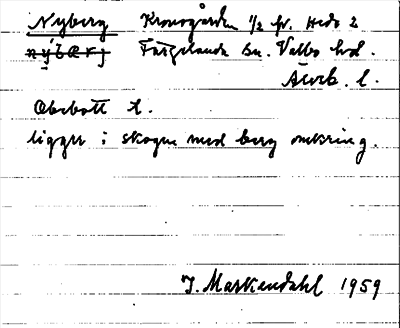 Nyberg Kronogården 1/2 fr. Heds 2
nýbærj Färgelanda sn. Valbo hd.
Älvsb. l.
Obebott t.
ligger i skogen med berg omkring.
J. Markendahl 1959